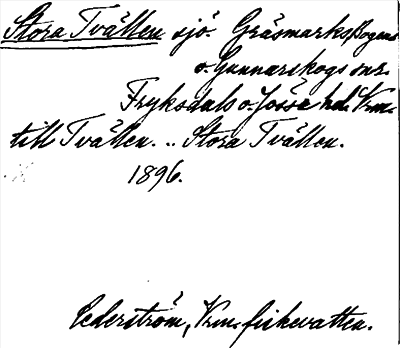 Stora Tvällen sjö. Gräsmarks, Bogens
o. Gunnarskogs snr.
Fryksdals o. Jösse hd. Vrm.
till Tvällen. .. Stora Tvällen.
1896.
Cederström, Vrm. fiskevatten.